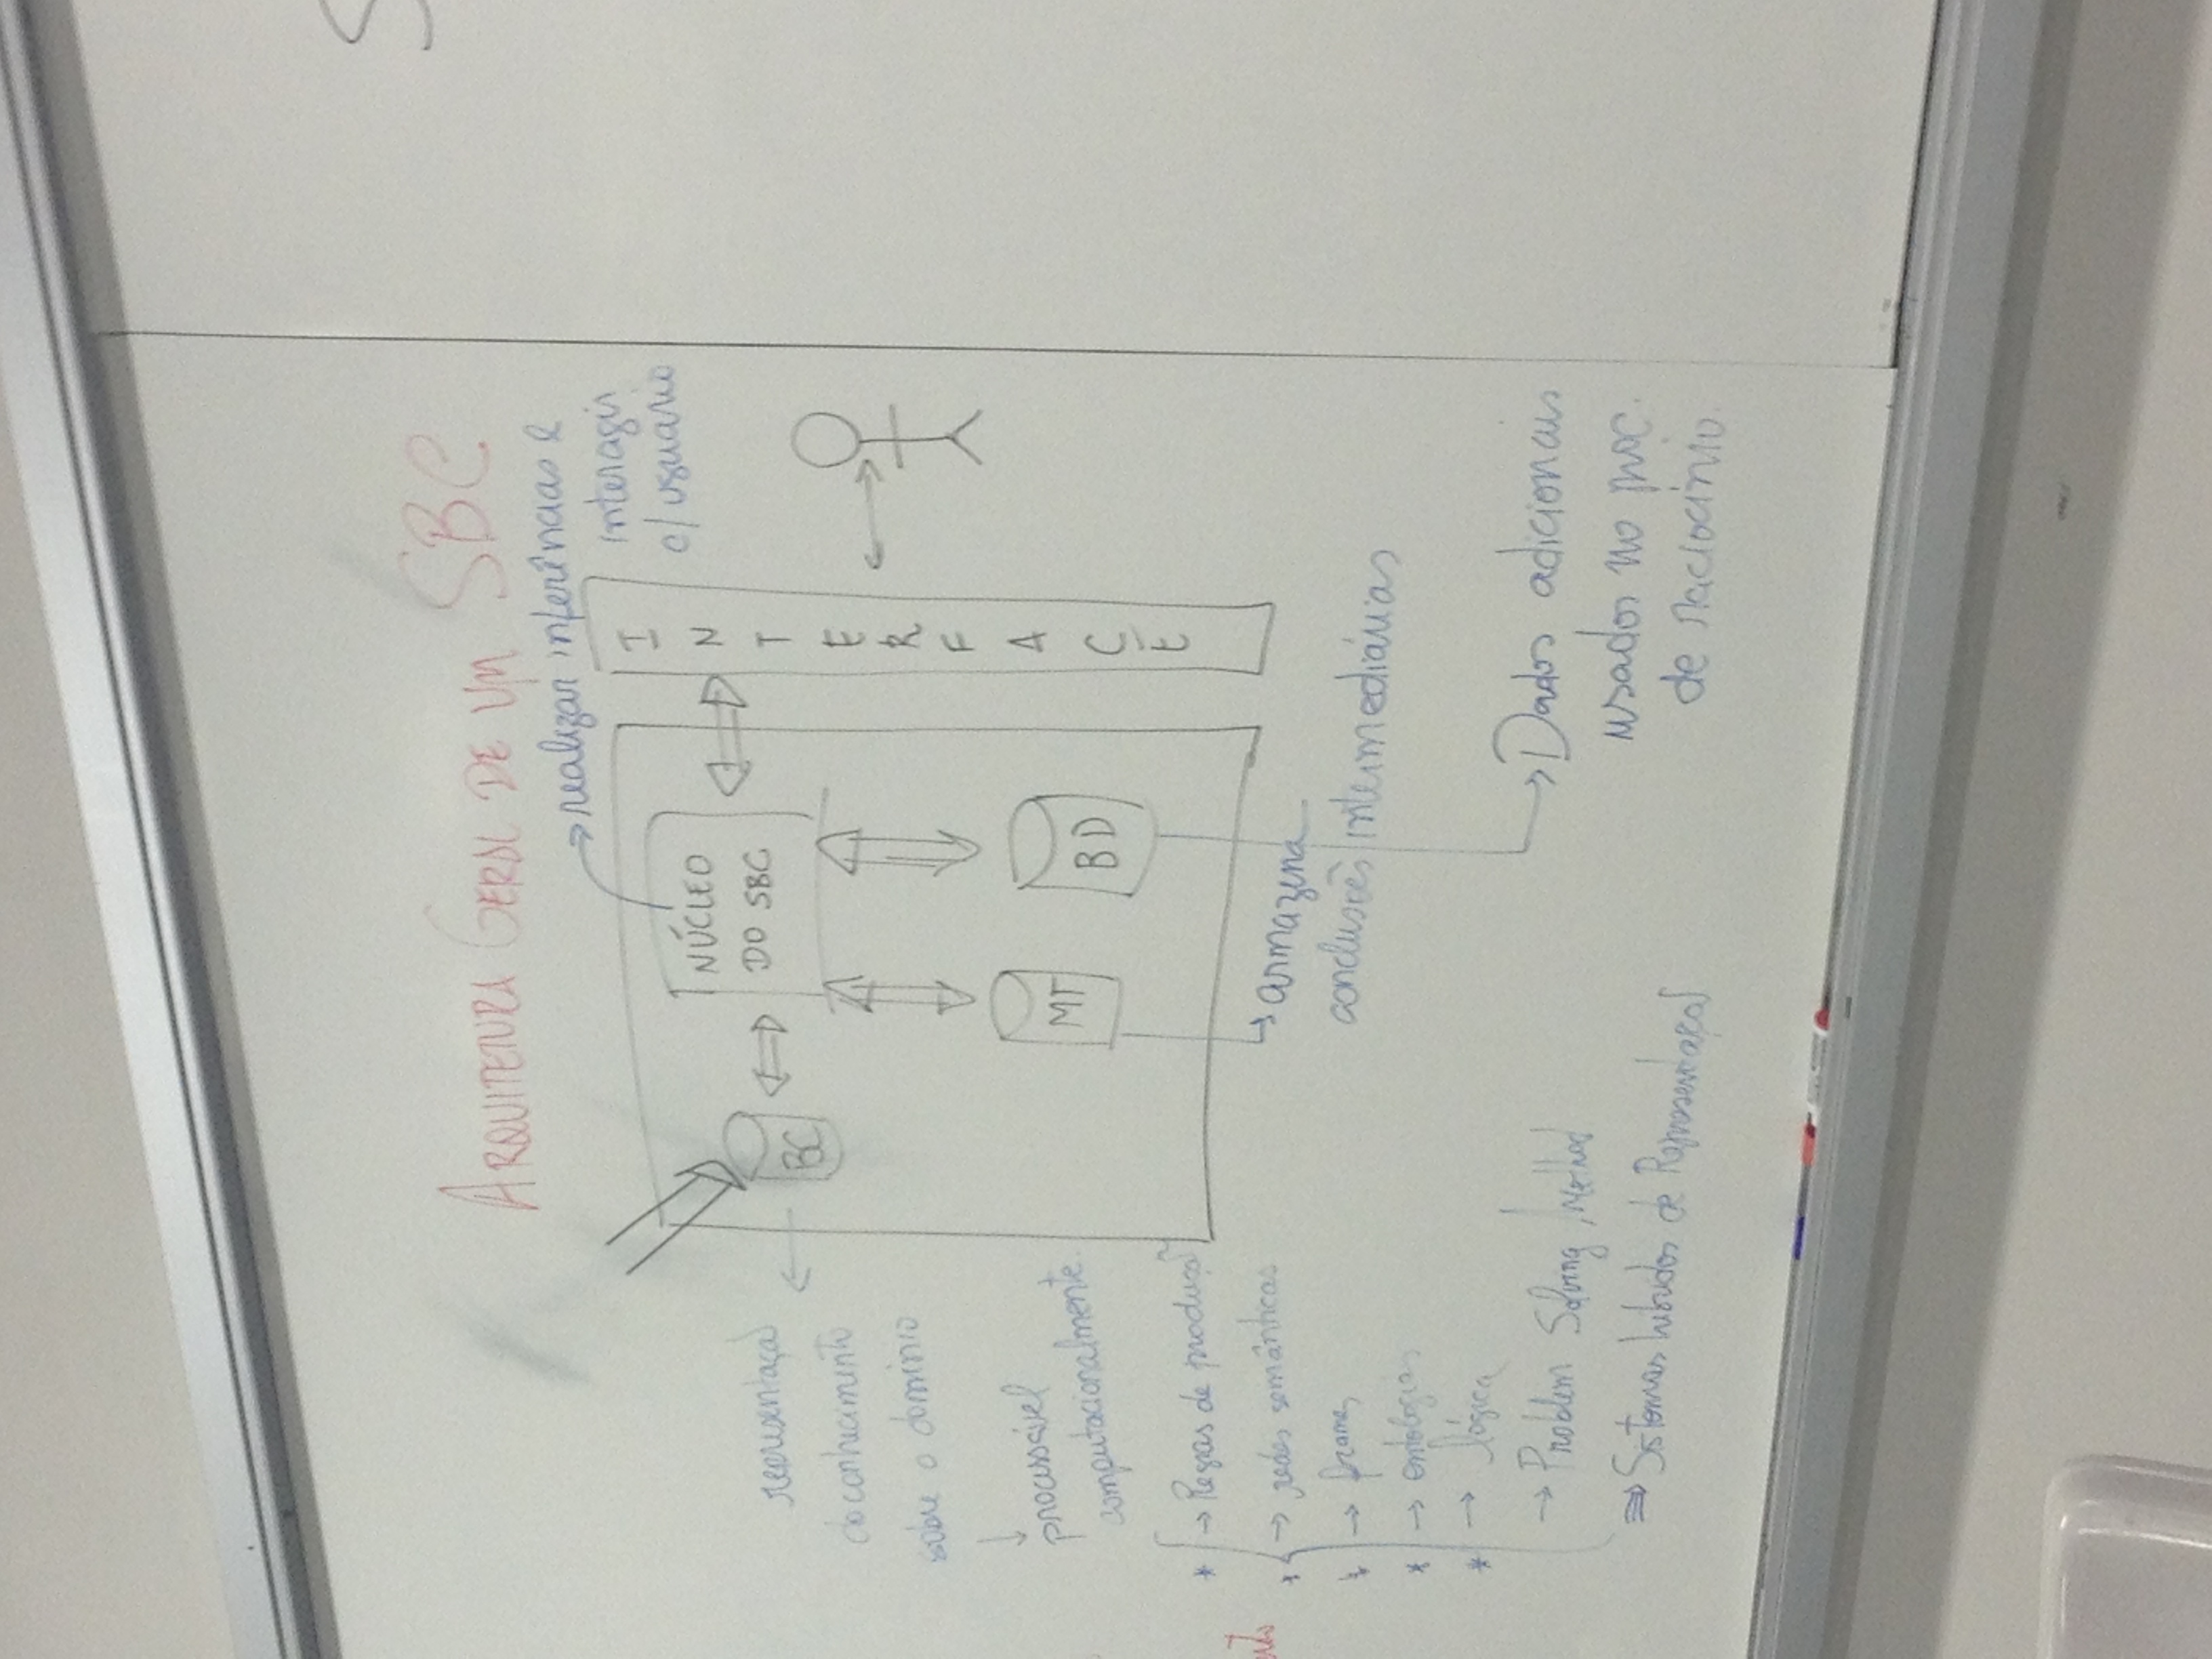 ARQUITETURA GERAL DE UM SBC
realizar inferências e
interagir
c/ usuário
NÚCLEO
DO SBC
BC
MT
BD
INTERFACE
representação
do conhecimento
sobre o domínio
processável
computacionalmente.
* → Regras de produção
* → redes semânticas
* → frames
* → ontologias
* → lógica
→ Problem Solving Method
⇒ Sistemas híbridos de Representação
armazena
conclusões intermediárias
Dados adicionais
usados no proc.
de raciocínio.
S